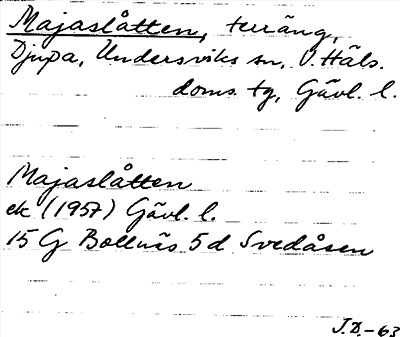 Majaslåtten, terräng,
Djupa, Undersviks sn, V. Häls.
doms. tg, Gävl. l.
Majaslåtten
ek (1957) Gävl. l.
15 G Bollnäs 5 d Svedåsen
J.D.-63